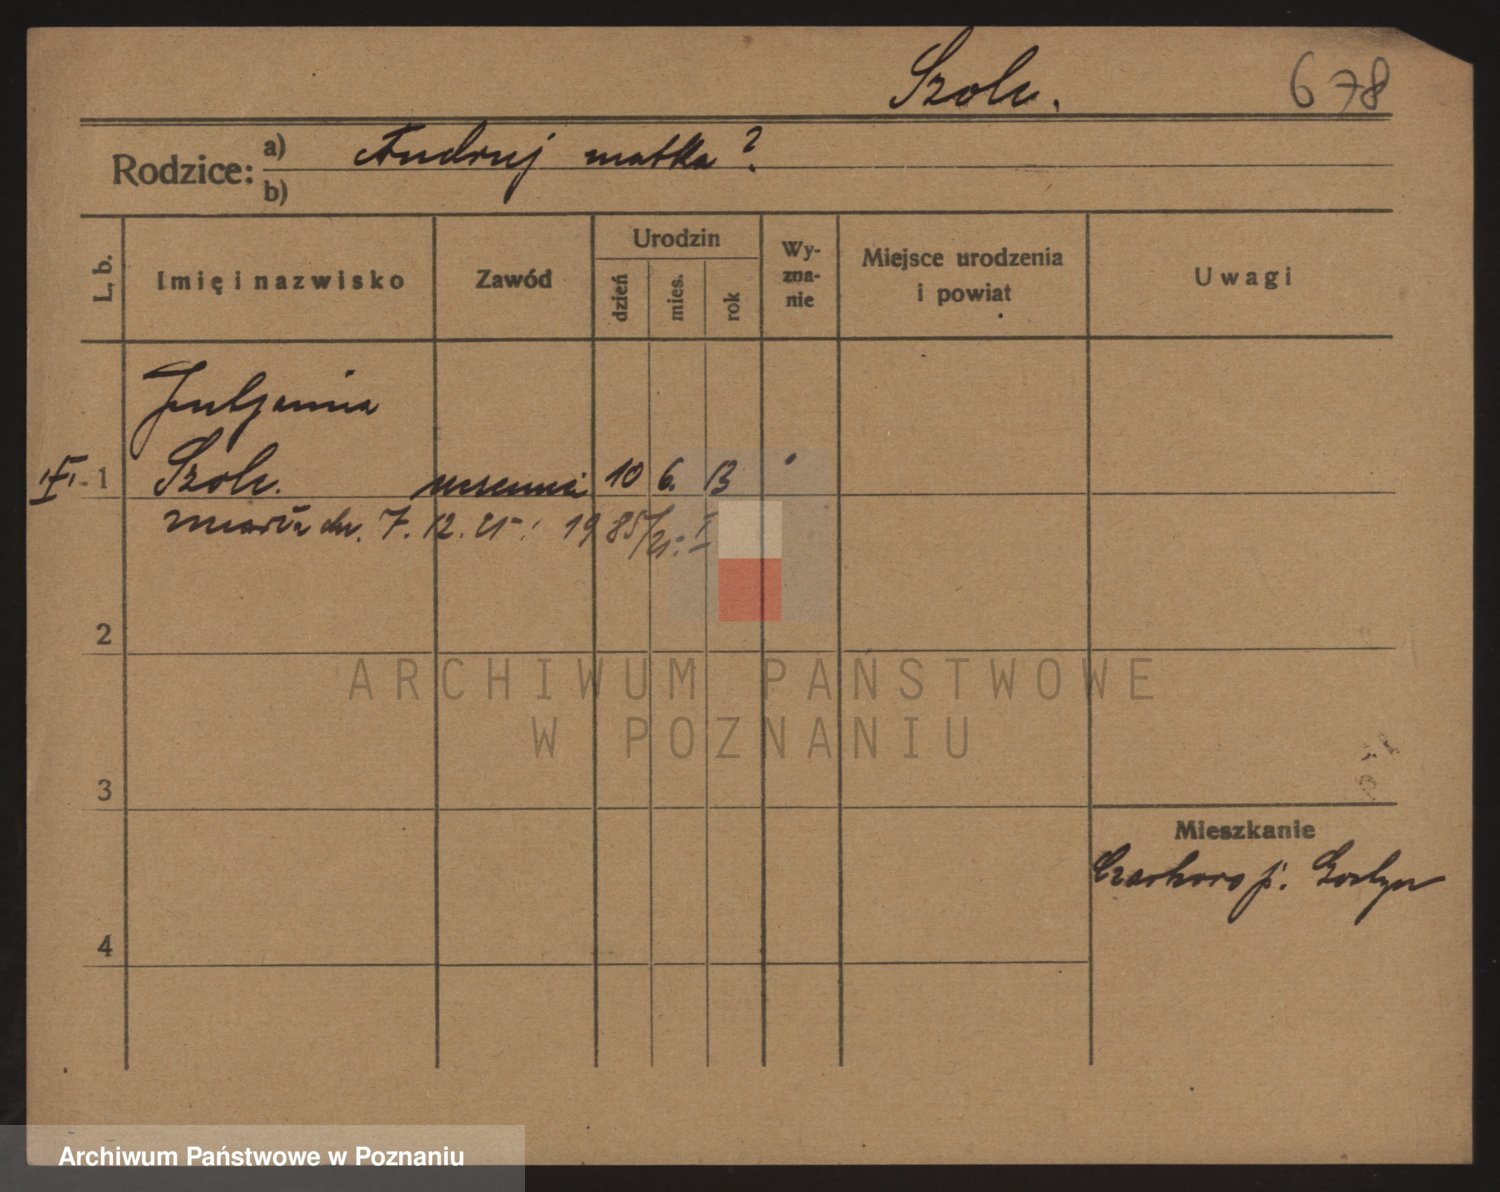 Szolc.
678
Rodzice: a) Andrzej matka?
b)
L. b. Imię i nazwisko Zawód Urodzin dzień mies. rok Wy-zna-nie Miejsce urodzenia i powiat Uwagi
Juljanna
1 Szolc. uczennica 10 6. 13
zmarła dn. 7. 12. 25
2
ARCHIWUM PAŃSTWOWE
W POZNANIU
3
Mieszkanie
p. Gostyń
4
Archiwum Państwowe w Poznaniu